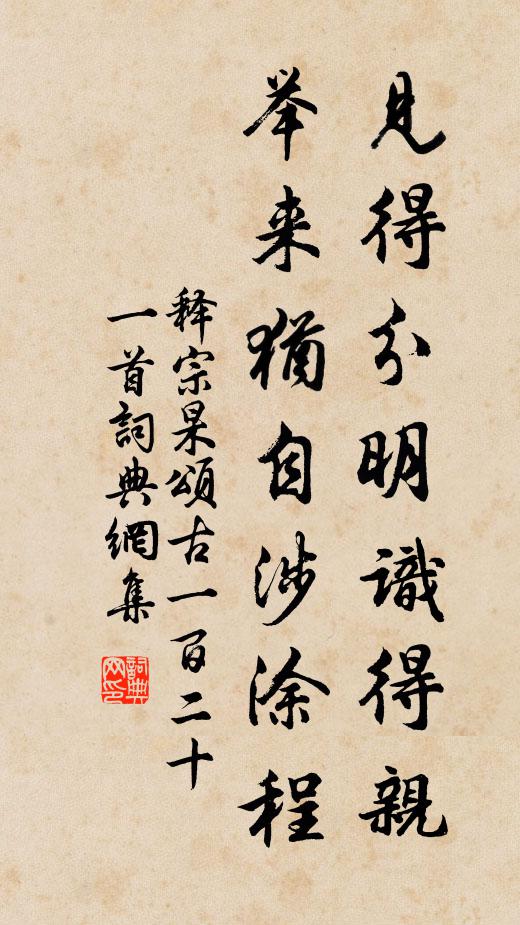 見得分明識得親
举来猶自涉涂程
释宗杲頌古一百二十
一首詞典網集
詞典网印